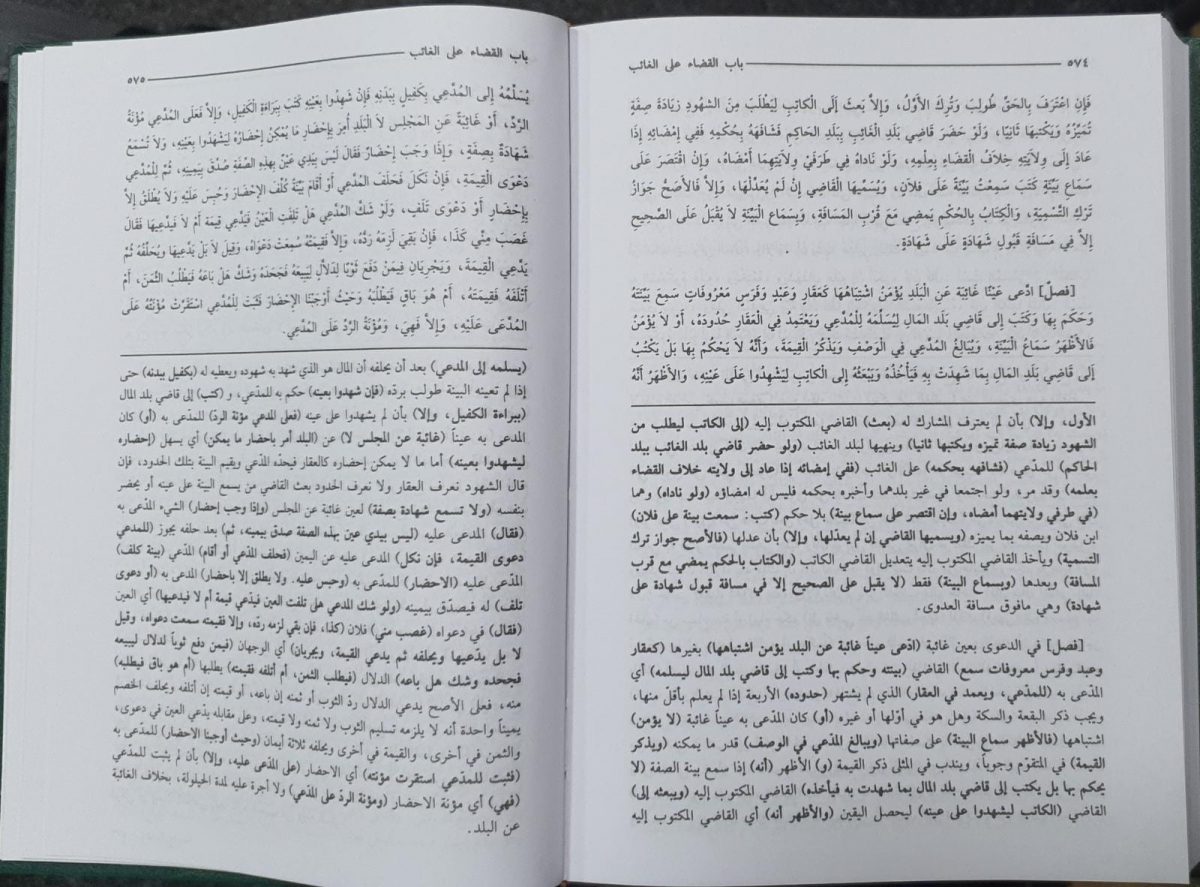 ٥٧٤ باب القضاء على الغائب
فَإِنِ اعْتَرَفَ بِالحَقِّ طُولِبَ وَتُرِكَ الأَوَّلُ، وَإلاَّ بَعَثَ إلَى الْكَاتِبِ لِيَطْلُبَ مِنَ الشهُودِ زِيَادَةَ صِفَةٍ
تُمَيِّزُهُ وَيَكْتُبهَا ثَانِيًا، وَلَوْ حَضَرَ قَاضِي بَلَدِ الْغَائِبِ بِبَلَدِ الحَاكِمِ فَشَافَهَهُ بِحُكْمِهِ فَفِي إمْضَائِهِ إذَا
عَادَ إلَى وِلاَيَتِهِ خِلاَفُ الْقَضَاءِ بِعِلْمِهِ، وَلَوْ نَادَاهُ فِي طَرَفَيْ وِلاَيَتِهِمَا أَمْضَاهُ، وَإنِ اقْتَصَرَ عَلَى
سَمَاعِ بَيِّنَةٍ كَتَبَ سَمِعْتُ بَيِّنَةً عَلَى فلاَنٍ، وَيُسَمِّيهَا الْقَاضِي إنْ لَمْ يُعَدِّلْهَا، وَإلاَّ فَالأصَحُّ جَوَازُ
تَرْكِ التَّسْمِيَةِ، وَالْكِتَابُ بِالحُكْمِ يَمْضِي مَعَ قُرْبِ المَسَافَةِ، وَبِسَمَاعِ الْبَيِّنَةِ لاَ يُقْبَلُ عَلَى الصَّحِيحِ
إلاَّ فِي مَسَافَةِ قَبُولِ شَهَادَةٍ عَلَى شَهَادَةٍ.
[فصلٌ] ادَّعى عَيْنًا غَائِبَةً عَنِ الْبَلَدِ يُؤْمَنُ اشتِبَاهُهَا كَعَقَارٍ وَعَبْدٍ وَفَرَسٍ مَعْرُوفَاتٍ سَمِعَ بَيِّنَتَهُ
وَحَكَمَ بِهَا وَكَتَبَ إلى قَاضِي بَلَدِ المَالِ لِيُسَلِّمَهُ لِلْمُدَّعِي وَيَعْتَمِدُ فِي الْعَقَارِ حُدُودَهُ، أَوْ لاَ يُؤْمَنُ
فَالأَظْهَرُ سَمَاعُ الْبَيِّنَةِ، وَيُبَالِغُ المُدَّعِي فِي الْوَصْفِ وَيَذْكُرُ الْقِيمَةَ، وَأَنَّهُ لاَ يَحْكُمُ بِهَا بَلْ يَكْتُبُ
إلَى قَاضِي بَلَدِ المَالِ بِمَا شَهِدَتْ بِهِ فَيَأْخُذُهُ وَيَبْعَثُهُ إلَى الْكاتِبِ لِيَشْهَدُوا عَلَى عَيْنِهِ، وَالأَظْهَرُ أَنَّهُ
الأول، وإلا) بأن لم يعترف المشارك له (بعث) القاضي المكتوب إليه (إلى الكاتب ليطلب من
الشهود زيادة صفة تميزه ويكتبها ثانيا) وينهيها لبلد الغائب (ولو حضر قاضي بلد الغائب ببلد
الحاكم) للمدّعي (فشافهه بحكمه) على الغائب (ففي إمضائه إذا عاد إلى ولايته خلاف القضاء
بعلمه) وقد مر، ولو اجتمعا في غير بلدهما وأخبره بحكمه فليس له امضاؤه (ولو ناداه) وهما
(في طرفي ولايتهما أمضاه، وإن اقتصر على سماع بينة) بلا حكم (كتب: سمعت بينة على فلان)
ابن فلان ويصفه بما يميزه (ويسميها القاضي إن لم يعدّلها، وإلا) بأن عدلها (فالأصح جواز ترك
التسمية) ويأخذ القاضي المكتوب إليه بتعديل القاضي الكاتب (والكتاب بالحكم يمضي مع قرب
المسافة) وبعدها (وبسماع البينة) فقط (لا يقبل على الصحيح إلا في مسافة قبول شهادة على
شهادة) وهي مافوق مسافة العدوى.
[فصل] في الدعوى بعين غائبة (ادّعى عيناً غائبة عن البلد يؤمن اشتباهها) بغيرها (كعقار
وعبد وفرس معروفات سمع) القاضي (بينته وحكم بها وكتب إلى قاضي بلد المال ليسلمه) أي
المدّعى به (للمدّعي، ويعمد في العقار) الذي لم يشتهر (حدوده) الأربعة إذا لم يعلم بأقلّ منها،
ويجب ذكر البقعة والسكة وهل هو في أوّلها أو غيره (أو) كان المدّعى به عيناً غائبة (لا يؤمن)
اشتباهها (فالأظهر سماع البينة) على صفاتها (ويبالغ المدّعي في الوصف) قدر ما يمكنه (ويذكر
القيمة) في المتقوّم وجوباً، ويندب في المثلى ذكر القيمة (و) الأظهر (أنه) إذا سمع بينة الصفة (لا
يحكم بها بل يكتب إلى قاضي بلد المال بما شهدت به فيأخذه) القاضي المكتوب إليه (ويبعثه إلى)
القاضي (الكاتب ليشهدوا على عينه) ليحصل اليقين (والأظهر أنه) أي القاضي المكتوب إليه
باب القضاء على الغائب ٥٧٥
يُسَلِّمُهُ إلى المُدَّعِي بِكَفِيلٍ بِبَدَنِهِ فَإنْ شَهِدُوا بِعَيْنِهِ كَتَبَ بِبَرَاءَةِ الْكَفِيلِ، وَإلاَّ فَعَلَى المُدَّعِي مُؤْنَةُ
الرَّدِّ، أَوْ غَائِبَةً عَنِ المَجْلِسِ لاَ الْبَلَدِ أُمِرَ بِإحْضَارِ مَا يُمْكِنُ إحْضَارُهُ لِيَشْهَدُوا بِعَيْنِهِ، وَلاَ تُسْمَعُ
شَهَادَةٌ بِصِفَةٍ، وَإذَا وَجَبَ إحْضَارٌ فَقَالَ لَيْسَ بِيَدِي عَيْنٌ بِهذِهِ الصِّفَةِ صُدِّقَ بِيَمِينِهِ، ثُمَّ لِلْمُدَّعِي
دَعْوَى الْقِيمَةِ، فَإنْ نَكَلَ فَحَلَفَ المُدَّعِي أَوْ أَقَامَ بَيِّنَةً كُلِّفَ الإحْضَارَ وَحُبِسَ عَلَيْهِ وَلاَ يُطْلَقُ إلاَّ
بِإحْضَارٍ أَوْ دَعْوَى تَلَفٍ، وَلَوْ شَكَّ المُدَّعِي هَلْ تَلِفَتِ الْعَيْنُ فَيَدَّعِي قِيمَةً أَمْ لاَ فَيَدَّعِيهَا فَقَالَ
غَصَبَ مِنِّي كَذَا، فَإنْ بَقِيَ لَزِمَهُ رَدُّهُ، وَإلاَّ فَقِيمَتُهُ سُمِعَتْ دَعْوَاهُ، وَقِيلَ لاَ بَلْ يَدَّعِيهَا وَيُحَلِّفُهُ ثُمَّ
يَدَّعِي الْقِيمَةَ، وَيَجْرِيَانِ فِيمَنْ دَفَعَ ثَوْبًا لِدَلاَّلٍ لِيَبِيعَهُ فَجَحَدَهُ وَشَكَّ هَلْ بَاعَهُ فَيَطْلُبُ الثَّمَنَ، أَمْ
أَتْلَفَهُ فَقِيمَتَهُ، أَمْ هُوَ بَاقٍ فَيَطْلُبُهُ وَحَيْثُ أَوْجَبْنَا الإحْضَارَ فَثَبَتَ لِلْمُدَّعِي اسْتَقَرَّتْ مُؤْنَتُهُ عَلَى
المُدَّعَى عَلَيْهِ، وَإلاَّ فَهِيَ، وَمُؤْنَةُ الرَّدِّ عَلَى المُدَّعِي.
(يسلمه إلى المدعي) بعد أن يحلفه أن المال هو الذي شهد به شهوده ويعطيه له (بكفيل ببدنه) حتى
إذا لم تعينه البينة طولب بردّه (فإن شهدوا بعينه) حكم به للمدّعي، و (كتب) إلى قاضي بلد المال
(ببراءة الكفيل، وإلا) بأن لم يشهدوا على عينه (فعلى المدعي مؤنة الردّ) للمدّعى به (أو) كان
المدعى به عيناً (غائبة عن المجلس لا) عن (البلد أمر باحضار ما يمكن) أي يسهل (إحضاره
ليشهدوا بعينه) أما ما لا يمكن إحضاره كالعقار فيحدّه المدّعي ويقيم البينة بتلك الحدود، فإن
قال الشهود نعرف العقار ولا نعرف الحدود بعث القاضي من يسمع البينة على عينه أو يحضر
بنفسه (ولا تسمع شهادة بصفة) لعين غائبة عن المجلس (وإذا وجب إحضار) الشيء المدّعى به
(فقال) المدعى عليه (ليس بيدي عين بهذه الصفة صدق بيمينه، ثم) بعد حلفه يجوز (للمدعي
دعوى القيمة، فإن نكل) المدعى عليه عن اليمين (فحلف المدّعي أو أقام) المدّعي (بينة كلف)
المدّعى عليه (الاحضار) للمدّعى به (وحبس عليه. ولا يطلق إلا باحضار) المدعى به (أو دعوى
تلف) له فيصدّق بيمينه (ولو شك المدعي هل تلفت العين فيدّعي قيمة أم لا فيدعيها) أي العين
(فقال) في دعواه (غصب مني) فلان (كذا، فإن بقي لزمه ردّه، وإلا فقيمته سمعت دعواه، وقيل
لا بل يدّعيها ويحلفه ثم يدعي القيمة، ويجريان) أي الوجهان (فيمن دفع ثوباً لدلال ليبيعه
فجحده وشك هل باعه) الدلال (فيطلب الثمن، أم أتلفه فقيمته) يطلبها (أم هو باق فيطلبه)
منه، فعلى الأصح يدعي الدلال ردّ الثوب أو ثمنه إن باعه، أو قيمته إن أتلفه ويحلف الخصم
يميناً واحدة أنه لا يلزمه تسليم الثوب ولا ثمنه ولا قيمته، وعلى مقابله يدّعي العين في دعوى،
والثمن في أخرى، والقيمة في أخرى ويحلفه ثلاثة أيمان (وحيث أوجبنا الاحضار) للمدّعى به
(فثبت للمدّعي استقرت مؤنته) أي الاحضار (على المدّعى عليه، وإلا) بأن لم يثبت للمدّعي
(فهي) أي مؤنة الاحضار (ومؤنة الردّ على المدّعي) ولا أجرة عليه لمدة الحيلولة، بخلاف الغائبة
عن البلد.